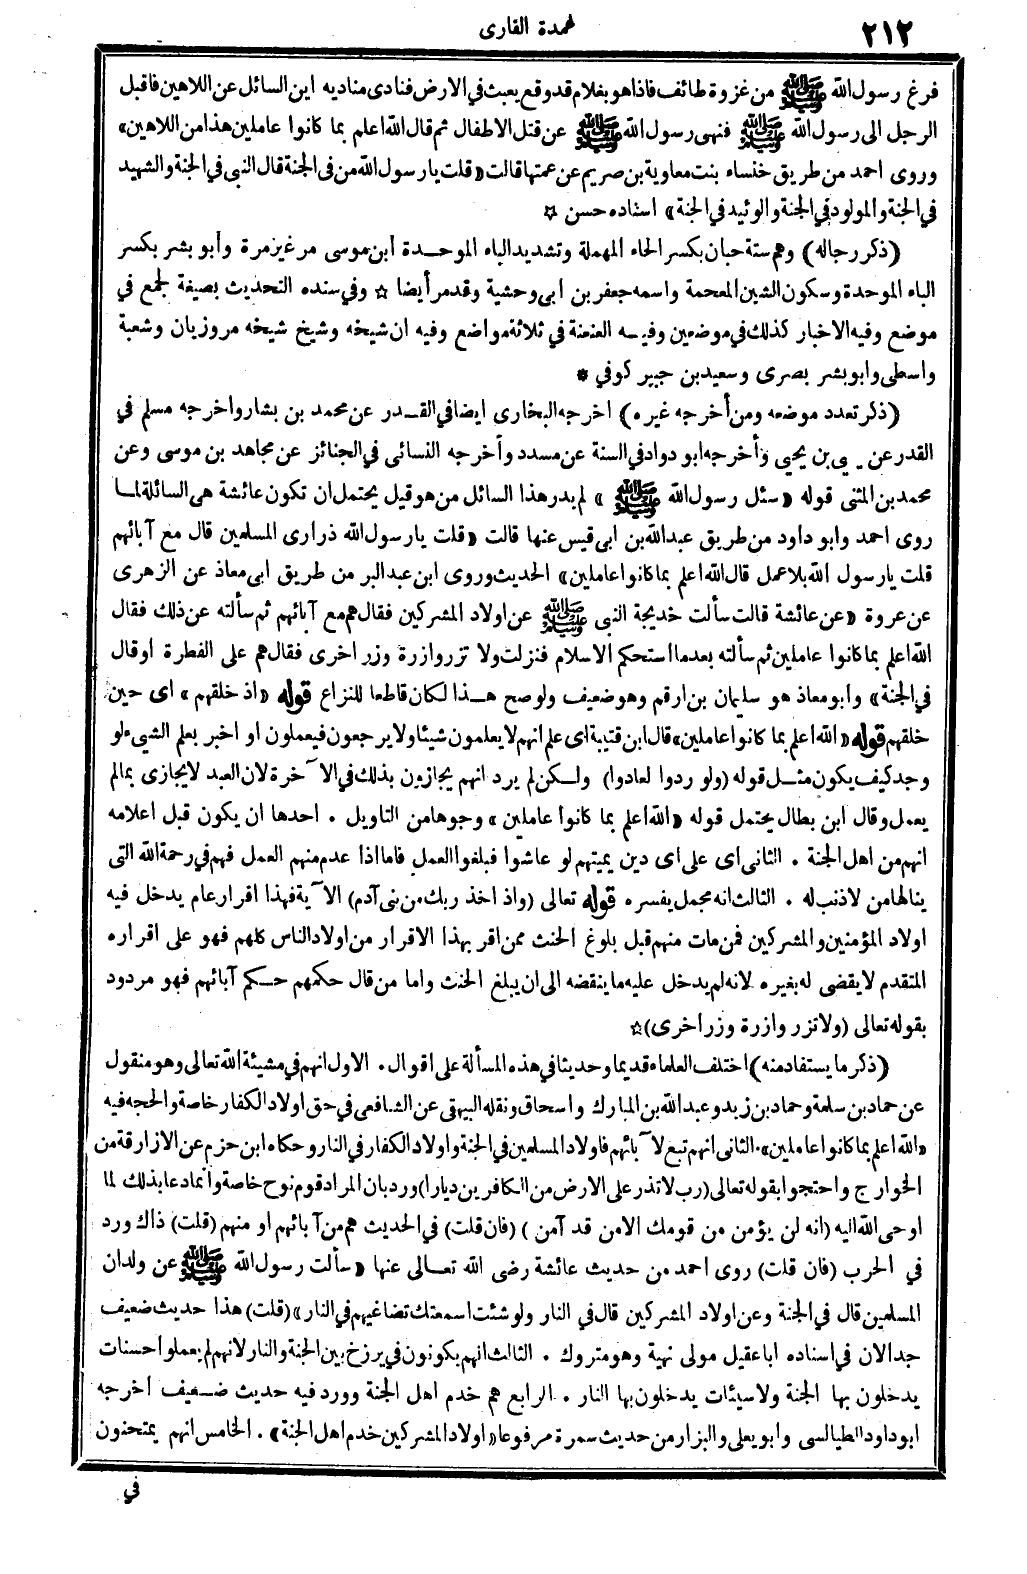 ٢١٢
عمدة القارى
فرغ رسول الله ﷺ من غزوة طائف فاذا هو بغلام قد وقع يعبث في الارض فنادى مناديه اين السائل عن اللاهين فاقبل
الرجل الى رسول الله ﷺ فنهى رسول الله ﷺ عن قتل الاطفال ثم قال الله اعلم بما كانوا عاملين هذا من اللاهين»
وروى احمد من طريق خنساء بنت معاوية بن صريم عن عمتها قالت «قلت يا رسول الله من فى الجنة قال النبى في الجنة والشهيد
في الجنة والمولود في الجنة والوئيد في الجنة» اسناده حسن ☆
(ذكر رجاله) وهم ستة حبان بكسر الحاء المهملة وتشديد الباء الموحدة ابن موسى مر غير مرة وأبو بشر بكسر
الباء الموحدة وسكون الشين المعجمة واسمه جعفر بن ابى وحشية وقد مر أيضا ☆ وفي سنده التحديث بصيغة لجمع في
موضع وفيه الاخبار كذلك في موضعين وفيه العنعنة في ثلاثة مواضع وفيه ان شيخه وشيخ شيخه مروزيان وشعبة
واسطى وابو بشر بصرى وسعيد بن جبير كوفي *
(ذكر تعدد موضعه ومن أخرجه غيره) اخرجه البخارى ايضا في القدر عن محمد بن بشار واخرجه مسلم في
القدر عن يحيى بن يحيى وأخرجه ابو دواد في السنة عن مسدد وأخرجه النسائى في الجنائز عن مجاهد بن موسى وعن
محمد بن المثنى قوله «سئل رسول الله ﷺ» لم يدر هذا السائل من هو قيل يحتمل ان تكون عائشة هى السائلة لما
روى احمد وابو داود من طريق عبد الله بن ابى قيس عنها قالت «قلت يا رسول الله ذرارى المسلمين قال مع آبائهم
قلت يا رسول الله بلا عمل قال الله اعلم بما كانوا عاملين» الحديث وروى ابن عبد البر من طريق ابى معاذ عن الزهرى
عن عروة «عن عائشة قالت سألت خديجة النبى ﷺ عن اولاد المشركين فقال هم مع آبائهم ثم سألته عن ذلك فقال
الله اعلم بما كانوا عاملين ثم سألته بعد ما استحكم الاسلام فنزلت ولا تزر وازرة وزر اخرى فقال هم على الفطرة او قال
في الجنة» وابو معاذ هو سليمان بن ارقم وهو ضعيف ولو صح هذا لكان قاطعا للنزاع قوله «اذ خلقهم» اى حين
خلقهم قوله «الله اعلم بما كانوا عاملين» قال ابن قتيبة اى علم انهم لا يعلمون شيئا ولا يرجعون فيعملون او اخبر بعلم الشىء لو
وجد كيف يكون مثل قوله (ولو ردوا لعادوا) ولكن لم يرد انهم يجازون بذلك في الآخرة لان العبد لا يجازى بما لم
يعمل وقال ابن بطال يحتمل قوله «الله اعلم بما كانوا عاملين» وجوها من التاويل . احدها ان يكون قبل اعلامه
انهم من اهل الجنة . الثانى اى على اى دين يميتهم لو عاشوا فبلغوا العمل فاما اذا عدم منهم العمل فهم في رحمة الله التى
ينالها من لا ذنب له . الثالث انه مجمل يفسره قوله تعالى (واذ اخذ ربك من بنى آدم) الآية فهذا اقرار عام يدخل فيه
اولاد المؤمنين والمشركين فمن مات منهم قبل بلوغ الحنث ممن اقر بهذا الاقرار من اولاد الناس كلهم فهو على اقراره
المتقدم لا يقضى له بغيره لانه لم يدخل عليه ما ينقضه الى ان يبلغ الحنث واما من قال حكمهم حكم آبائهم فهو مردود
بقوله تعالى (ولا تزر وازرة وزر اخرى) ☆
(ذكر ما يستفاد منه) اختلف العلماء قديما وحديثا في هذه المسألة على اقوال . الاول انهم في مشيئة الله تعالى وهو منقول
عن حماد بن سلمة وحماد بن زيد وعبد الله بن المبارك واسحاق ونقله البيهقى عن الشافعى في حق اولاد الكفار خاصة والحجه فيه
«الله اعلم بما كانوا عاملين». الثانى انهم تبع لآبائهم فاولاد المسلمين في الجنة واولاد الكفار في النار وحكاه ابن حزم عن الازارقة من
الخوارج واحتجوا بقوله تعالى (رب لا تذر على الارض من الكافرين ديارا) ورد بان المراد قوم نوح خاصة وانما دعا بذلك لما
اوحى الله اليه (انه لن يؤمن من قومك الا من قد آمن) (فان قلت) في الحديث هم من آبائهم او منهم (قلت) ذاك ورد
في الحرب (فان قلت) روى احمد من حديث عائشة رضى الله تعالى عنها «سألت رسول الله ﷺ عن ولدان
المسلمين قال في الجنة وعن اولاد المشركين قال في النار ولو شئت اسمعتك تضاغيهم في النار» (قلت) هذا حديث ضعيف
جدا لان في اسناده ابا عقيل مولى نهية وهو متروك . الثالث انهم يكونون في برزخ بين الجنة والنار لانهم لم يعملوا حسنات
يدخلون بها الجنة ولا سيئات يدخلون بها النار . الرابع هم خدم اهل الجنة وورد فيه حديث ضعيف اخرجه
ابو داود الطيالسى وابو يعلى والبزار من حديث سمرة مرفوعا «اولاد المشركين خدم اهل الجنة» . الخامس انهم يمتحنون
في